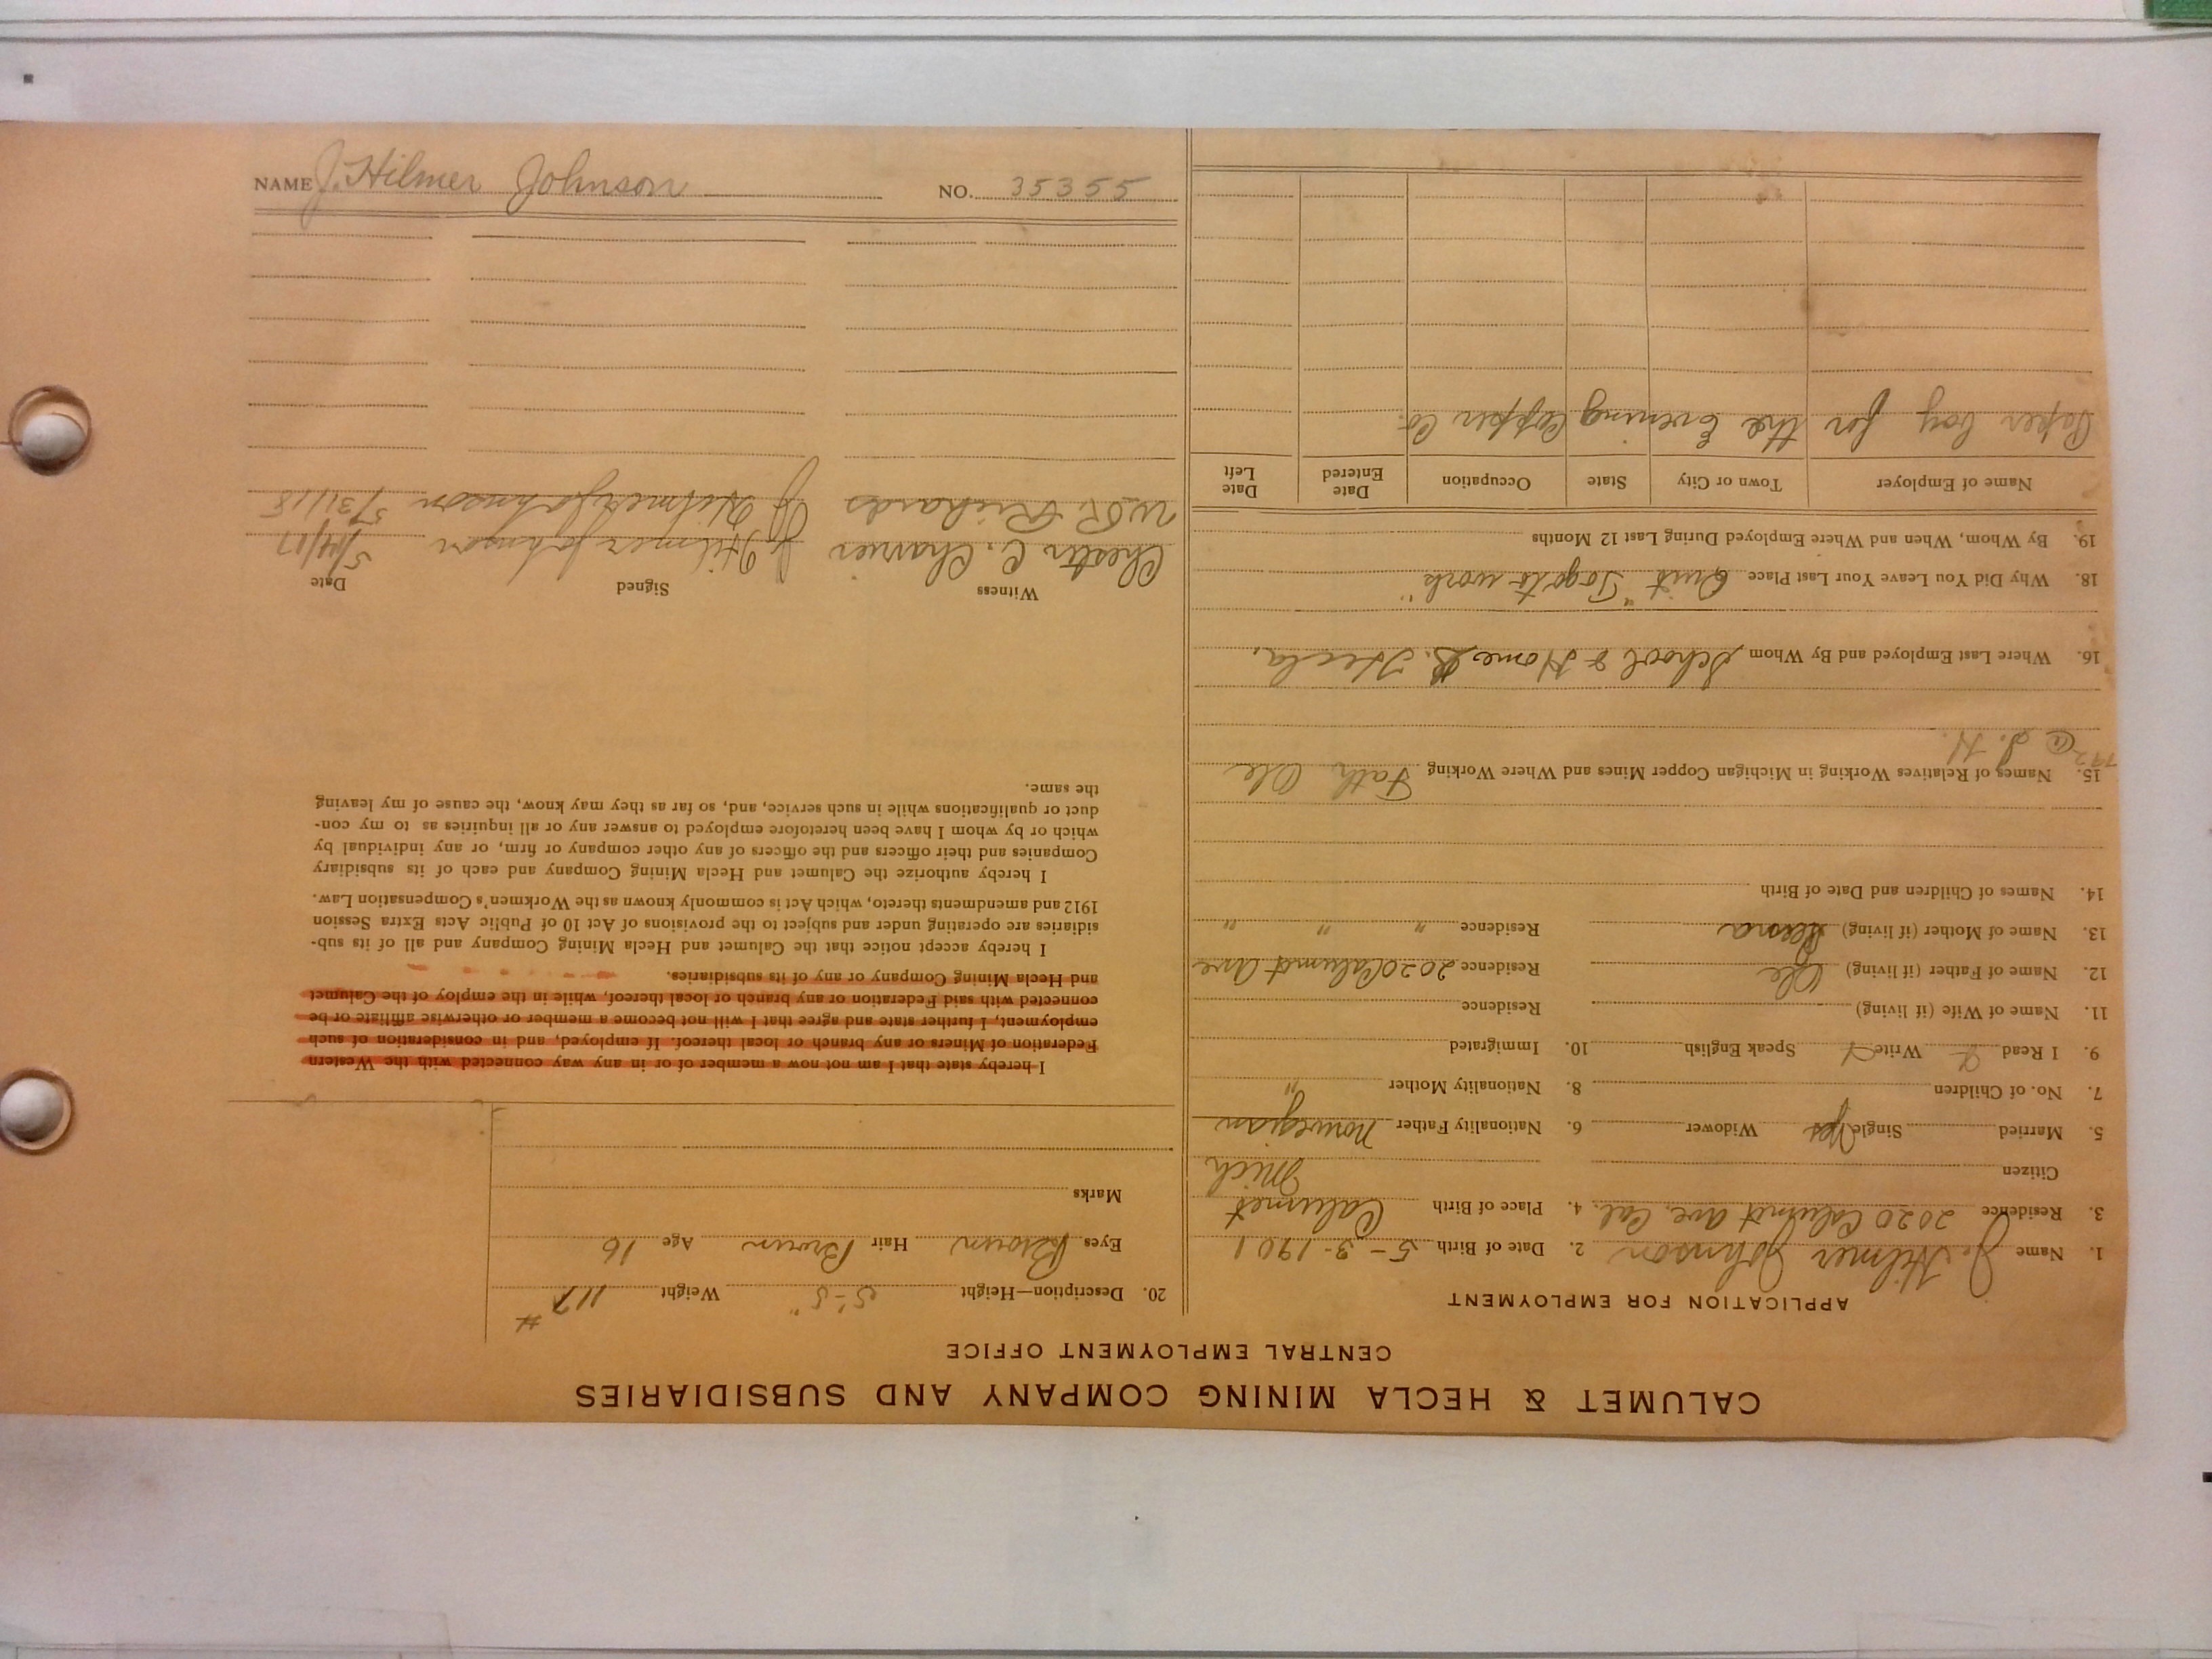 CALUMET & HECLA MINING COMPANY AND SUBSIDIARIES
CENTRAL EMPLOYMENT OFFICE
APPLICATION FOR EMPLOYMENT
1. Name J. Hilmer Johnson 2. Date of Birth 5-3-1901
3. Residence 2020 Calumet Ave, Cal. 4. Place of Birth Calumet
Citizen Mich
5. Married Single Yes Widower 6. Nationality Father Norwegian
7. No. of Children 8. Nationality Mother "
9. I Read Write Speak English 10. Immigrated
11. Name of Wife (if living) Residence
12. Name of Father (if living) Ole Residence 2020 Calumet Ave
13. Name of Mother (if living) Residence " " "
14. Names of Children and Date of Birth
15. Names of Relatives Working in Michigan Copper Mines and Where Working Fath Ole
16. Where Last Employed and By Whom School & Home Hecla,
18. Why Did You Leave Your Last Place Quit "To go to work"
19. By Whom, When and Where Employed During Last 12 Months
Name of Employer Town or City State Occupation Date Entered Date Left
Paper boy for the Evening Copper Co.
20. Description—Height 5'-5" Weight 117 #
Eyes Brown Hair Brown Age 16
Marks
I hereby state that I am not now a member of or in any way connected with the Western
Federation of Miners or any branch or local thereof. If employed, and in consideration of such
employment, I further state and agree that I will not become a member or otherwise affiliate or be
connected with said Federation or any branch or local thereof, while in the employ of the Calumet
and Hecla Mining Company or any of its subsidiaries.
I hereby accept notice that the Calumet and Hecla Mining Company and all of its sub-
sidiaries are operating under and subject to the provisions of Act 10 of Public Acts Extra Session
1912 and amendments thereto, which Act is commonly known as the Workmen's Compensation Law.
I hereby authorize the Calumet and Hecla Mining Company and each of its subsidiary
Companies and their officers and the officers of any other company or firm, or any individual by
which or by whom I have been heretofore employed to answer any or all inquiries as to my con-
duct or qualifications while in such service, and, so far as they may know, the cause of my leaving
the same.
Witness Signed Date
Chester C. J Hilmer Johnson 5/14/17
W.R. Richards J Hilmer Johnson 5/31/18
NAME J. Hilmer Johnson NO. 35355